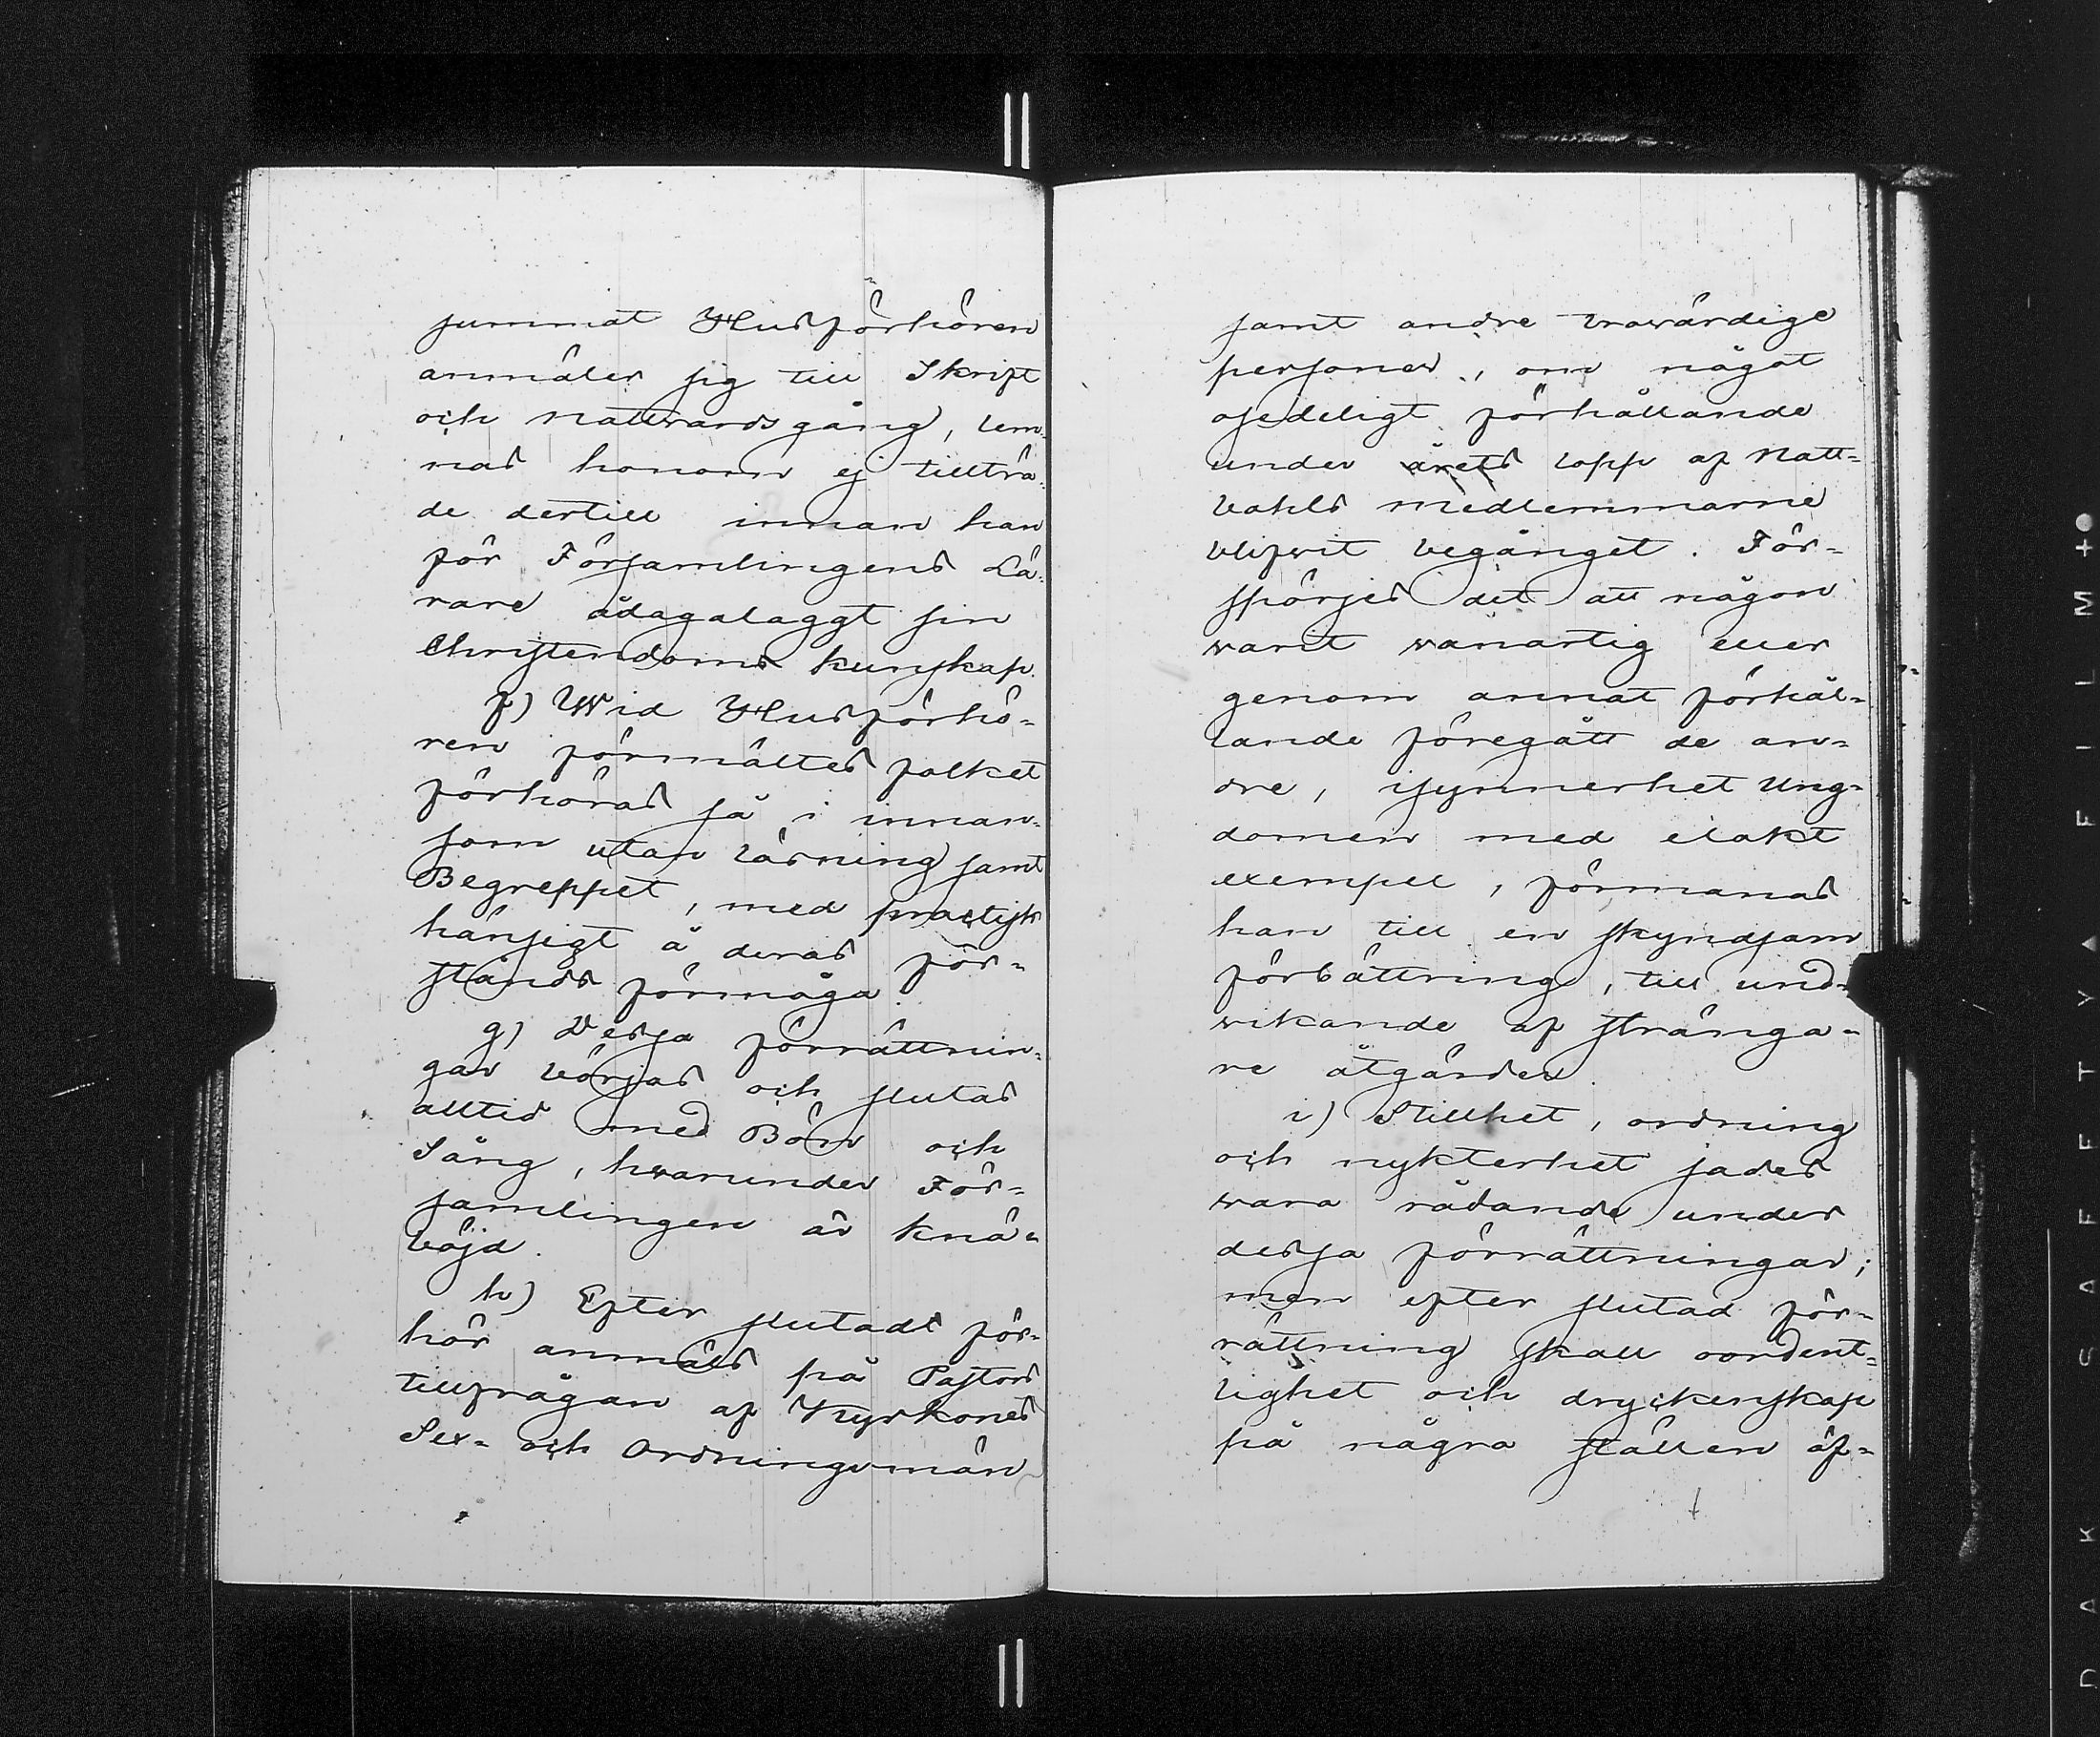 summat Husförhören
anmäler sig till Skrift
och Nattvardsgång, lem-
nas honom ej tillträ-
de dertill innan han
för Församlingens Lä-
rare ådagalaggt sin
Christendoms kunskap.
f) Wid Husförhö-
ren förmältes folket
förhöras så i innan-
som utan läsning samt
Begreppet, med practisk
hänsigt å deras för-
stånds förmåga.
g) Dessa förrättnin-
gar börjas och slutas
alltid med Bön och
Sång, hwarunder För-
samlingen är knä-
böjd.
h) Efter slutadt för-
hör anmäls på Pastors
tillfrågan af Kyrkones
Sex- och Ordningsmän
samt andre trowärdige
personer, om något
osedeligt förhållande
under årets lopp af Natt-
vahls medlemmarne
blifwit begånget. För-
spörjes det att någon
warit wanartig eller
genom annat förhål-
lande föregått de an-
dre, isynnerhet Ung-
domen med elakt
exempel, förmanas
han till en skyndsam
förbättring, till und-
wikande af stränga-
re åtgärder.
i) Stillhet, ordning
och nykterhet sades
wara rådande under
dessa förrättningar;
men efter slutad för-
rättning skall oordent-
lighet och dryckenskap
på några ställen äf-
DAK SAFETY A FILM +●